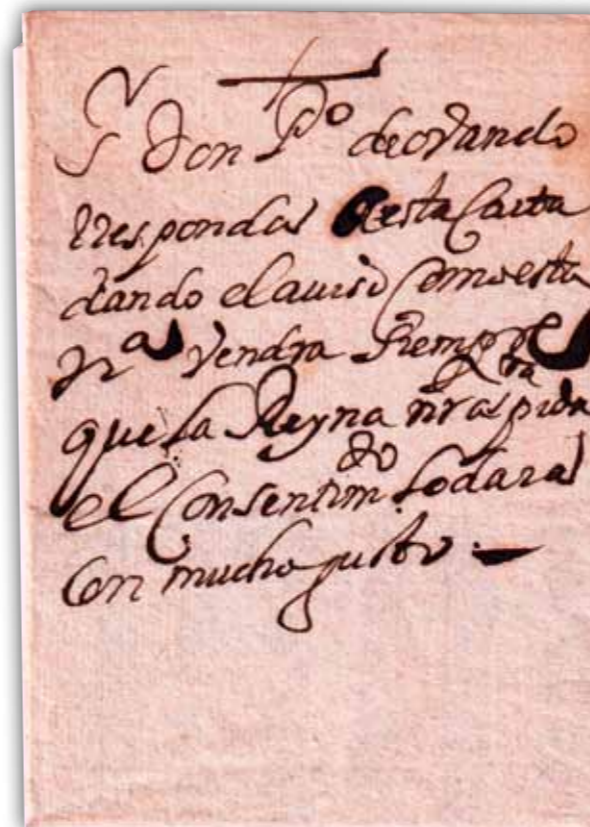 Sr Don Po de ovando
rrespondas a esta Carta
dando el auiso Como esta
na vendra siempre
que la Reyna nra as pida
el Consentimto lo daras
con mucho gusto.